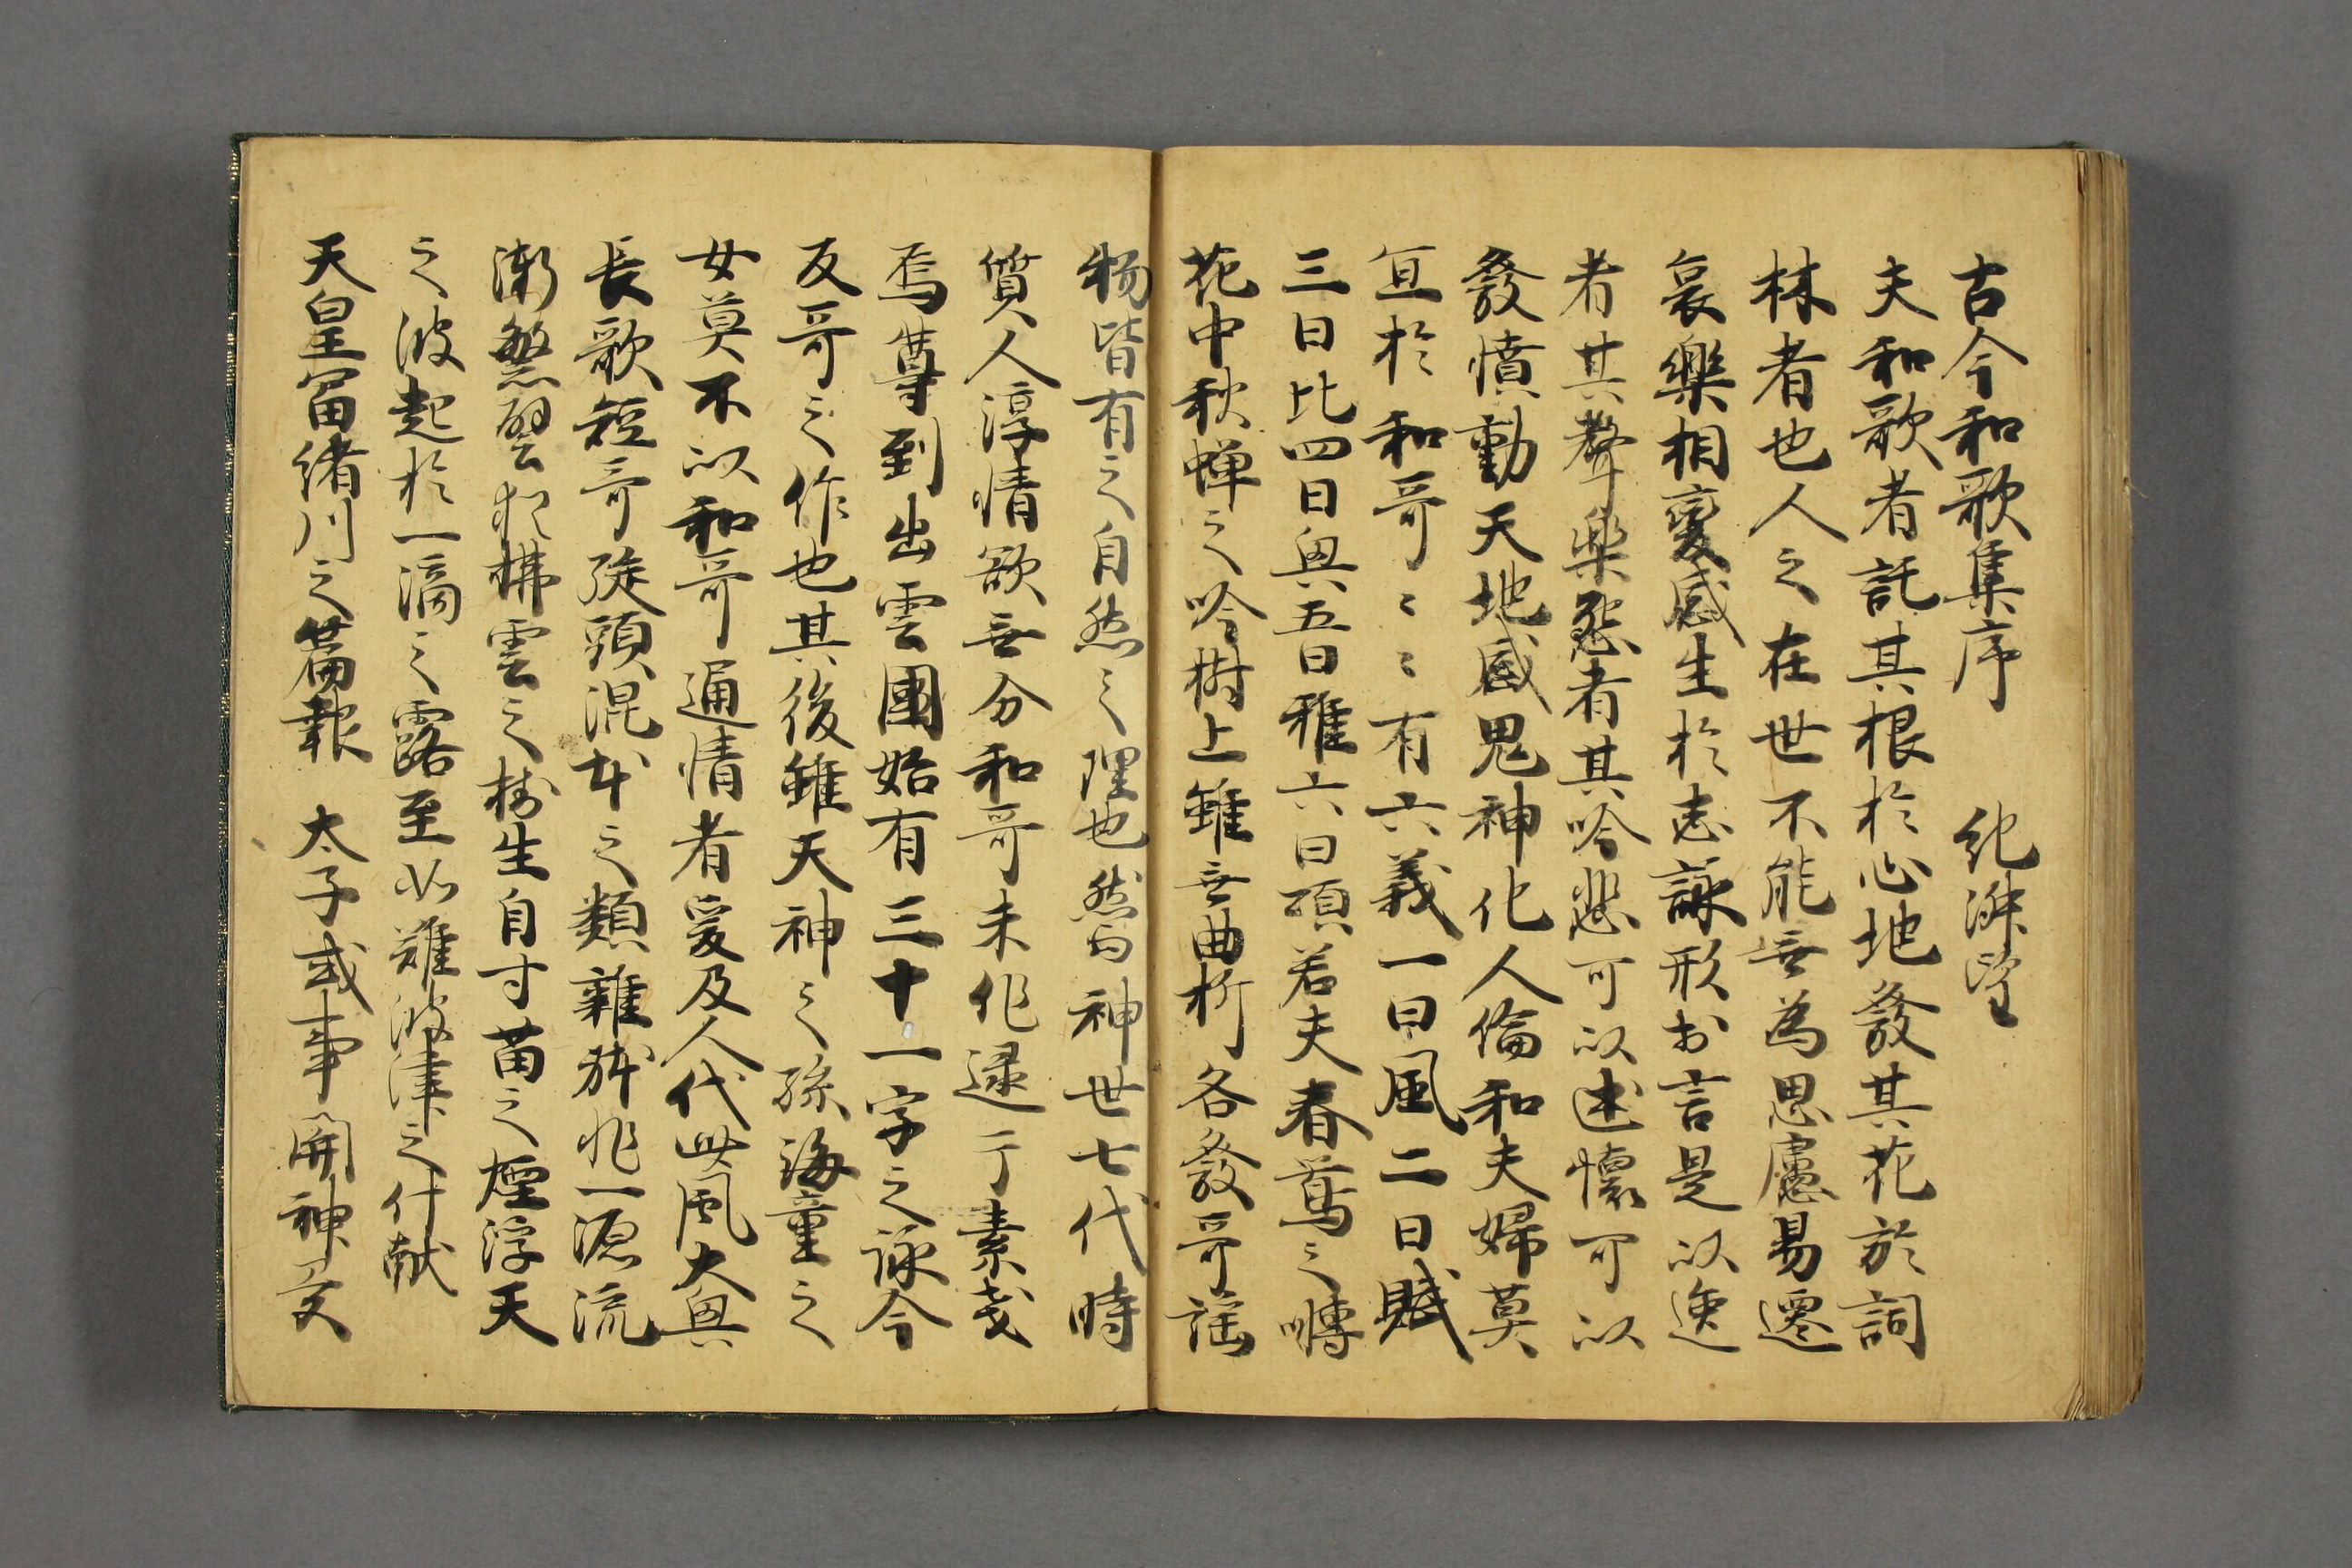 古今和歌集序 紀淑望
夫和歌者託其根於心地發其花於詞
林者也人之在世不能無為思慮易遷
哀樂相變感生於志詠形於言是以逸
者其聲樂怨者其吟悲可以述懷可以
發憤動天地感鬼神化人倫和夫婦莫
宜於和哥〻〻有六義一曰風二曰賦
三曰比四曰興五曰雅六曰頌若夫春鶯之囀
花中秋蟬之吟樹上雖無曲折各發哥謡
物皆有之自然之理也然而神世七代時
質人淳情欲無分和哥未作逮于素戔
烏尊到出雲國始有三十一字之詠今
反哥之作也其後雖天神之孫海童之
女莫不以和哥通情者爰及人代此風大興
長歌短哥旋頭混本之類雜躰非一源流
漸繁譬猶拂雲之樹生自寸苗之煙浮天
之波起於一滴之露至如難波津之什献
天皇富緒川之篇報 太子或事開神異